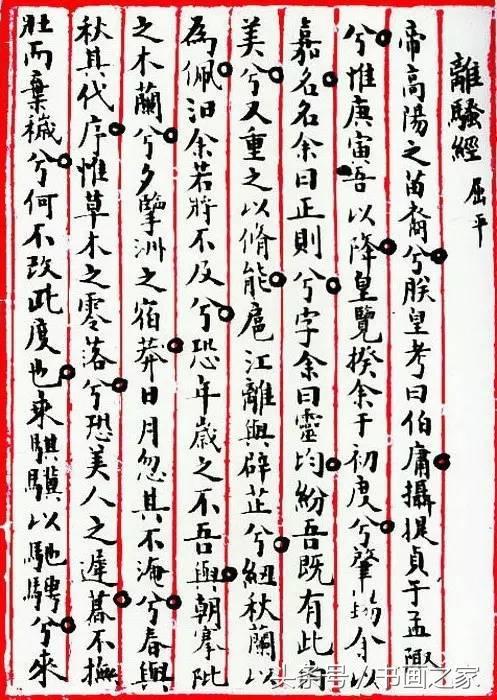 離騷經 屈平
帝高陽之苗裔兮朕皇考曰伯庸攝提貞于孟陬
兮惟庚寅吾以降皇覽揆余于初度兮肇錫余以
嘉名名余曰正則兮字余曰靈均紛吾既有此內
美兮又重之以脩能扈江離與辟芷兮紉秋蘭以
為佩汨余若將不及兮恐年歲之不吾與朝搴阰
之木蘭兮夕擥洲之宿莽日月忽其不淹兮春與
秋其代序惟草木之零落兮恐美人之遲暮不撫
壯而棄穢兮何不改此度也乘騏驥以馳騁兮來
头条号 / 书画之家